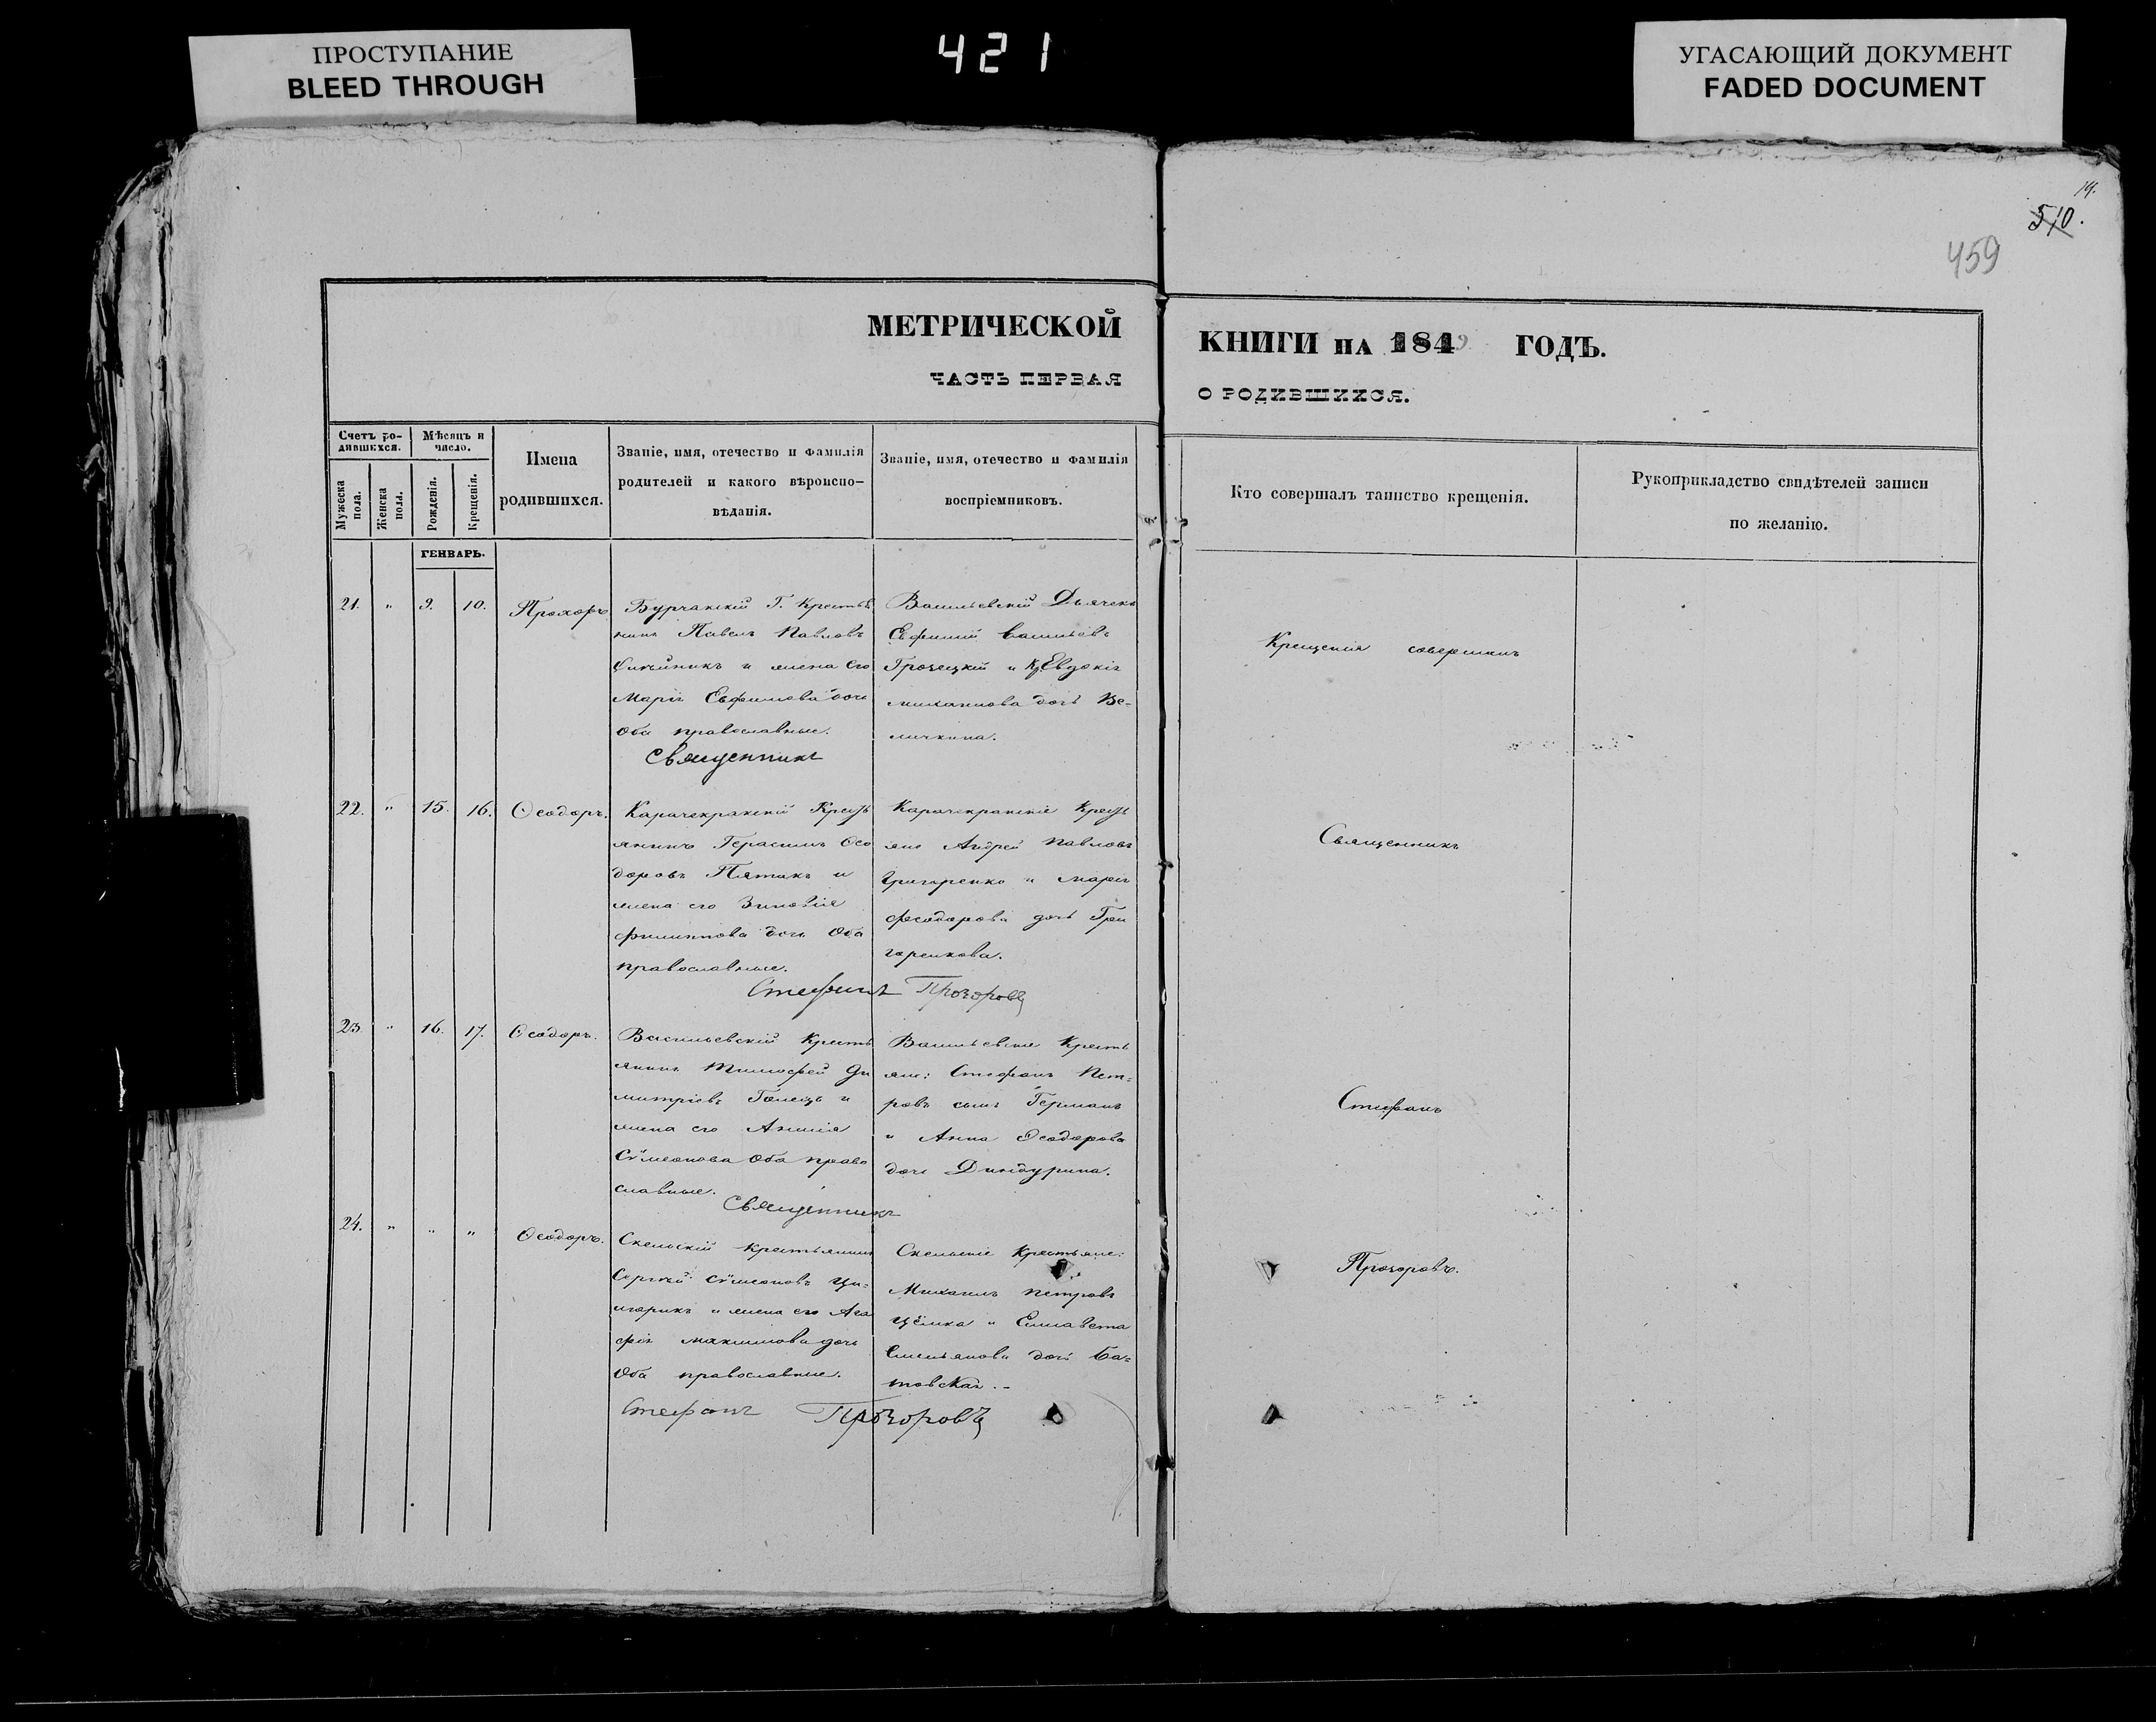 ПРОСТУПАНИЕ
BLEED THROUGH
421
УГАСАЮЩИЙ ДОКУМЕНТ
FADED DOCUMENT
14.
510.
459
МЕТРИЧЕСКОЙ КНИГИ НА 1849 ГОДЪ.
ЧАСТЬ ПЕРВАЯ О РОДИВШИХСЯ.
Счетъ ро-
дившихся.
Мужеска
пола.
Женска
пола.
Мѣсяцъ и
число.
Рожденія.
Крещенія.
Имена
родившихся.
Званіе, имя, отечество и фамилія
родителей и какого вѣроиспо-
вѣданія.
Званіе, имя, отечество и фамилія
воспріемниковъ.
Кто совершалъ таинство крещенія.
Рукоприкладство свидѣтелей записи
по желанію.
ГЕНВАРЬ.
21. " 9. 10. Прохоръ
Бурчакскій Г. Крестья
нинъ Павелъ Павловъ
и жена его
Марія Евфимова дочь
Оба православные.
Васильевскій Дьячекъ
Евфимій Васильевъ
Грочецкій и Евдокія
Михаилова дочь Ве-
личкина.
Священникъ
Крещенія совершалъ
22. " 15. 16. Ѳеодоръ.
Карачекракскій Кресть
янинъ Герасимъ Ѳео
доровъ Пятакъ и
жена его Зиновія
Филиппова дочь Оба
православные.
Карачекракскіе Кресть
яне Андрей Павловъ
Григоренко и Марія
Феодорова дочь Гри
горенкова.
Стефанъ Прохоровъ
Священникъ
23. " 16. 17. Ѳеодоръ.
Васильевскій Кресть
янинъ Тимофей Ди
митріевъ и
жена его Аннія
Сѵмеонова Оба право
славные.
Васильевскіе Кресть
яне: Стефанъ Пет-
ровъ сынъ Германъ
и Анна Ѳеодорова
дочь Диндурина.
Священникъ
Стефанъ
24. " " " Ѳеодоръ.
Скельскій Крестьянинъ
Сергѣй Сѵмеоновъ Ци-
и жена его Ага
фія Максимова дочь
Оба православные.
Скельскіе Крестьяне:
Михаилъ Петровъ
и Елисавета
Емельянова дочь Ба-
товская.-
Стефанъ Прохоровъ
Прохоровъ.